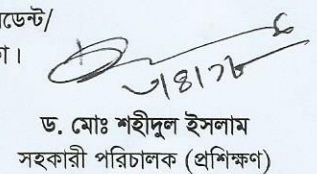 ডেন্ট/
া।
৩/৪/১৮
ড. মোঃ শহীদুল ইসলাম
সহকারী পরিচালক (প্রশিক্ষণ)